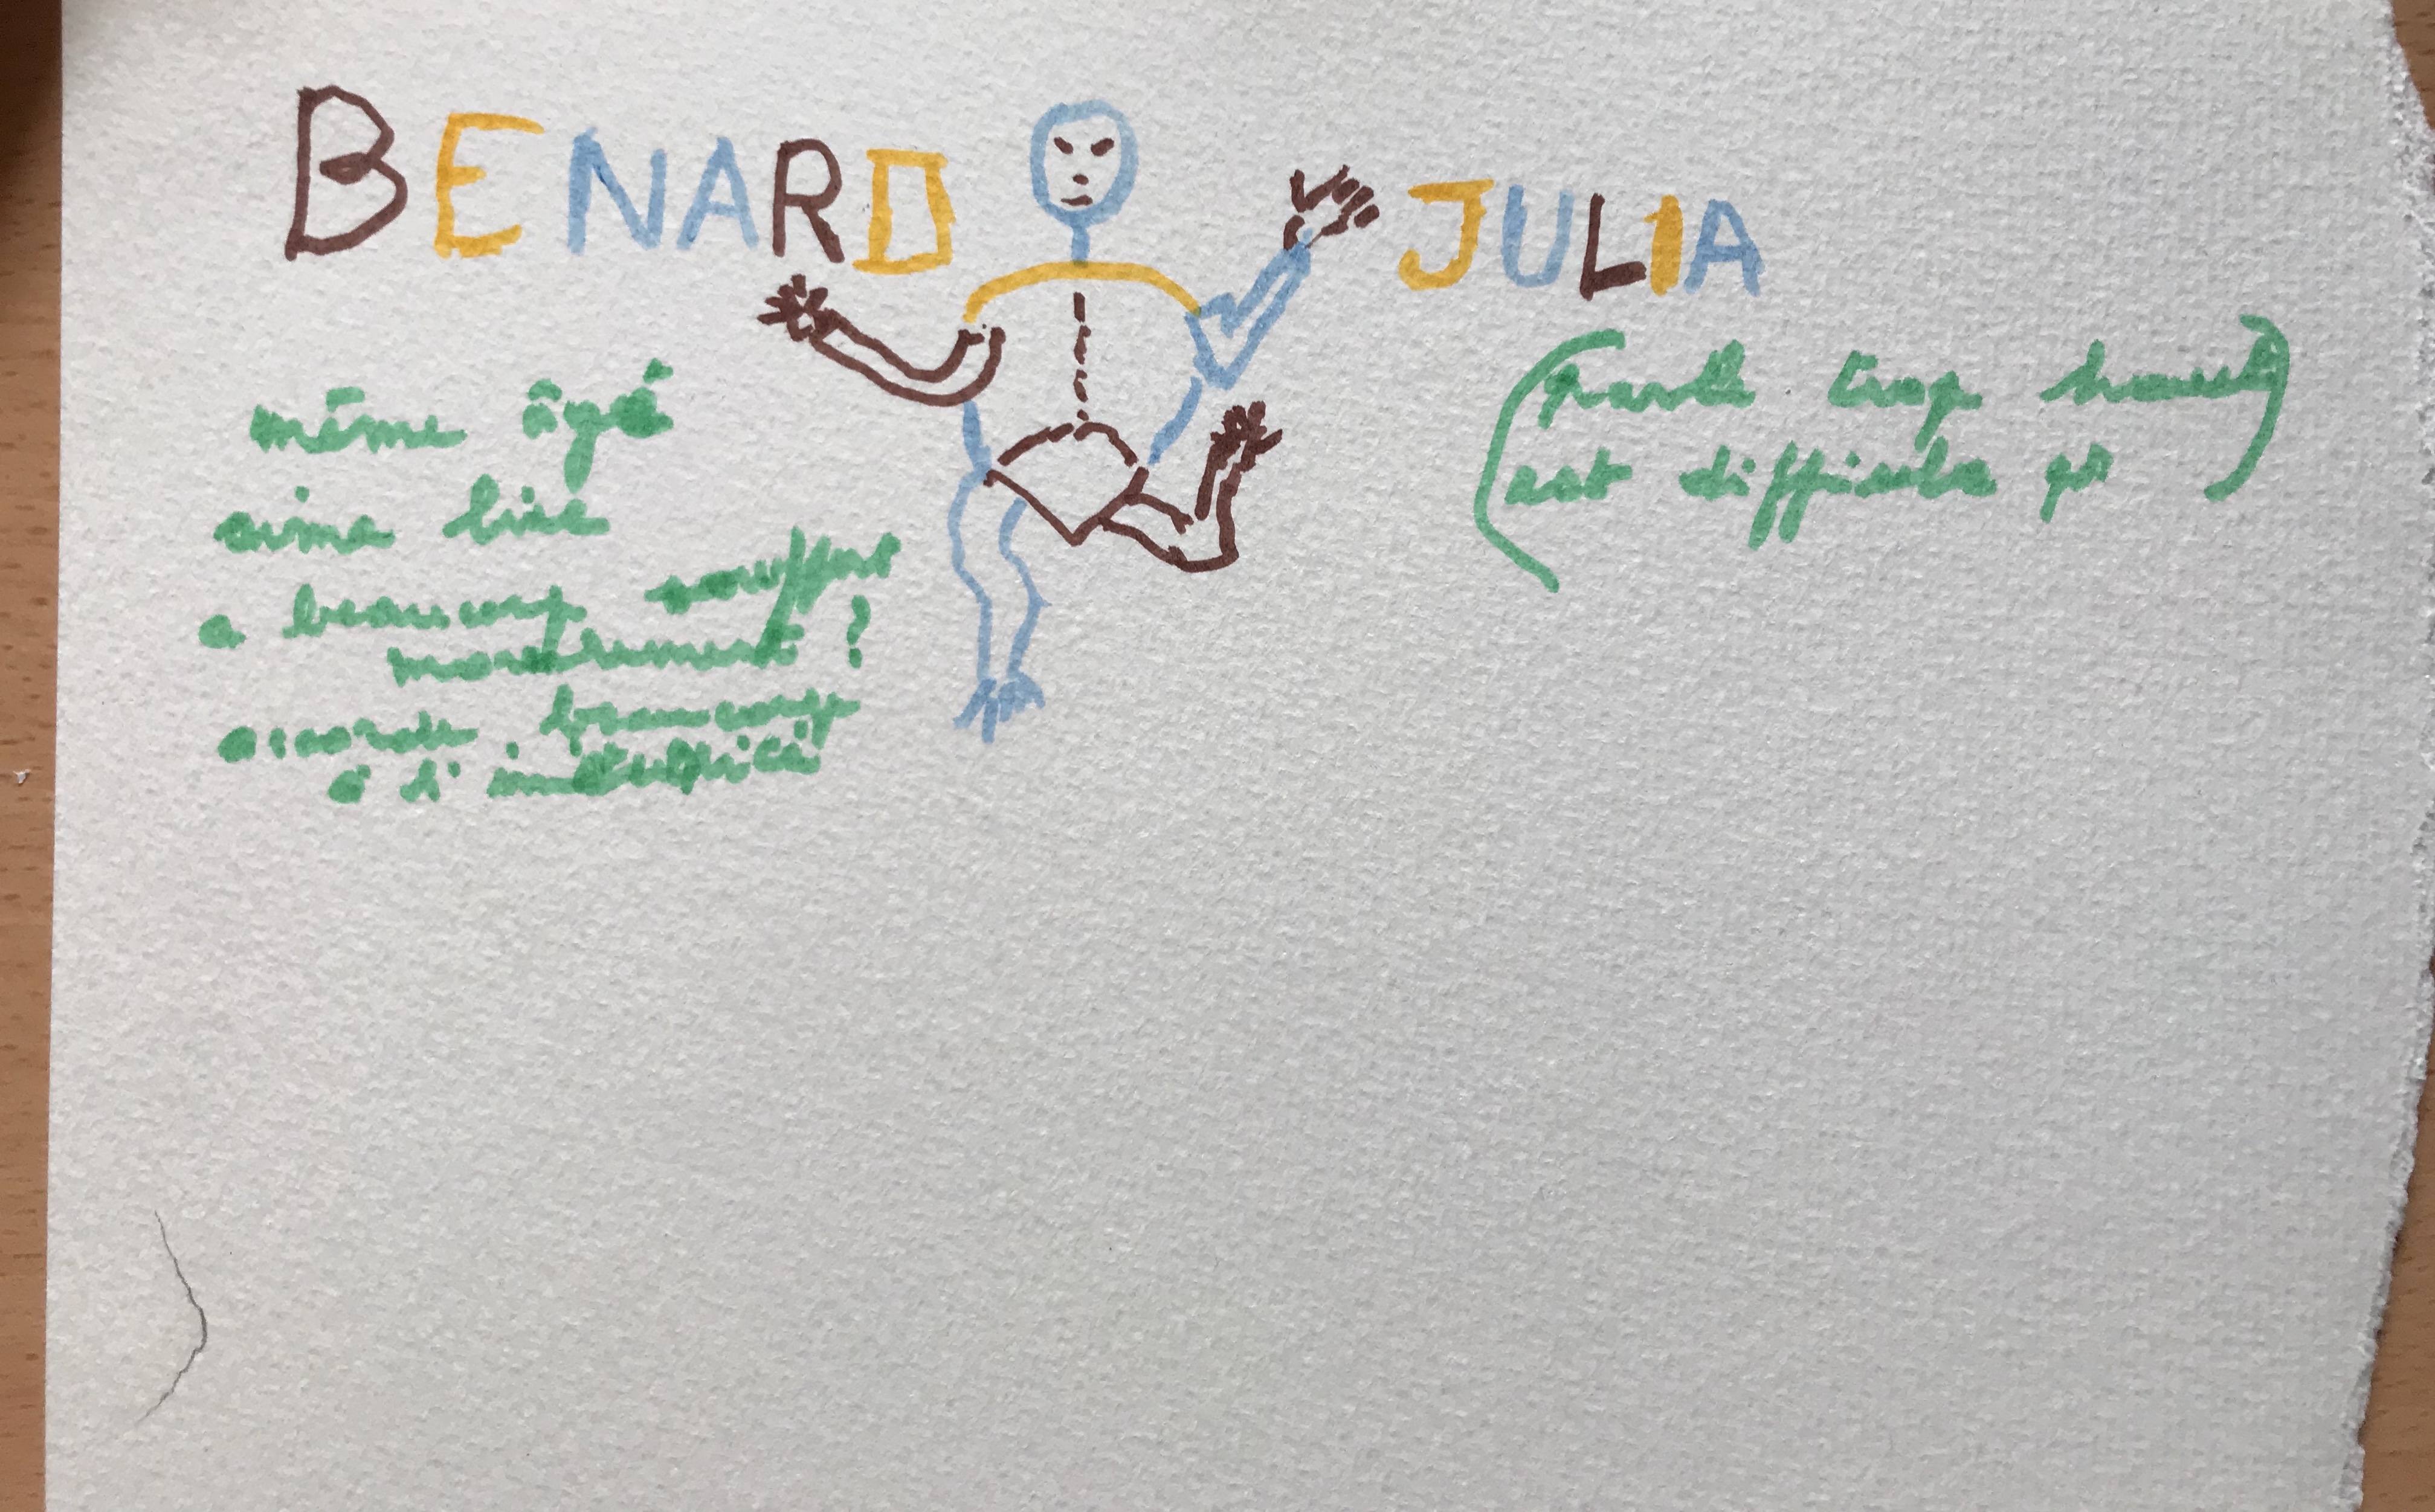 BENARD JULIA
même âge
aime lire
a beaucoup souffert
moralement ?
accorde beaucoup
à l'
(parle trop haut
est difficile